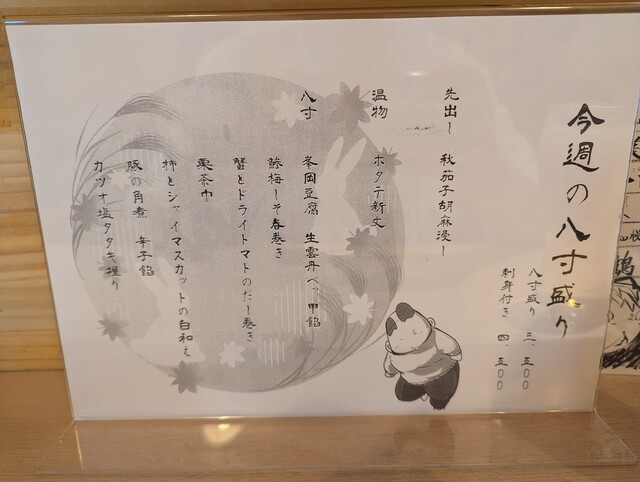 今週の八寸盛り
八寸盛り 三、五〇〇
刺身付き 四、五〇〇
先出し 秋茄子胡麻浸し
温物 ホタテ新丈
八寸 峯岡豆腐 生雲丹べっ甲餡
鱧梅しそ春巻き
蟹とドライトマトのだし巻き
栗茶巾
柿とシャイマスカットの白和え
豚の角煮 辛子餡
カツオ塩タタキ握り